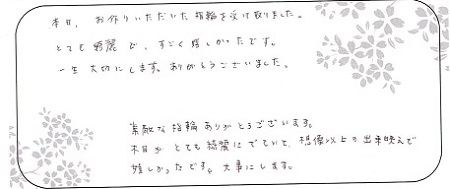 本日、お作りいただいた指輪を受け取りました。
とても綺麗で、すごく嬉しかったです。
一生大切にします。ありがとうございました。
素敵な指輪ありがとうございます。
木目がとても綺麗にでていて、想像以上の出来映えで
嬉しかったです。大事にします。